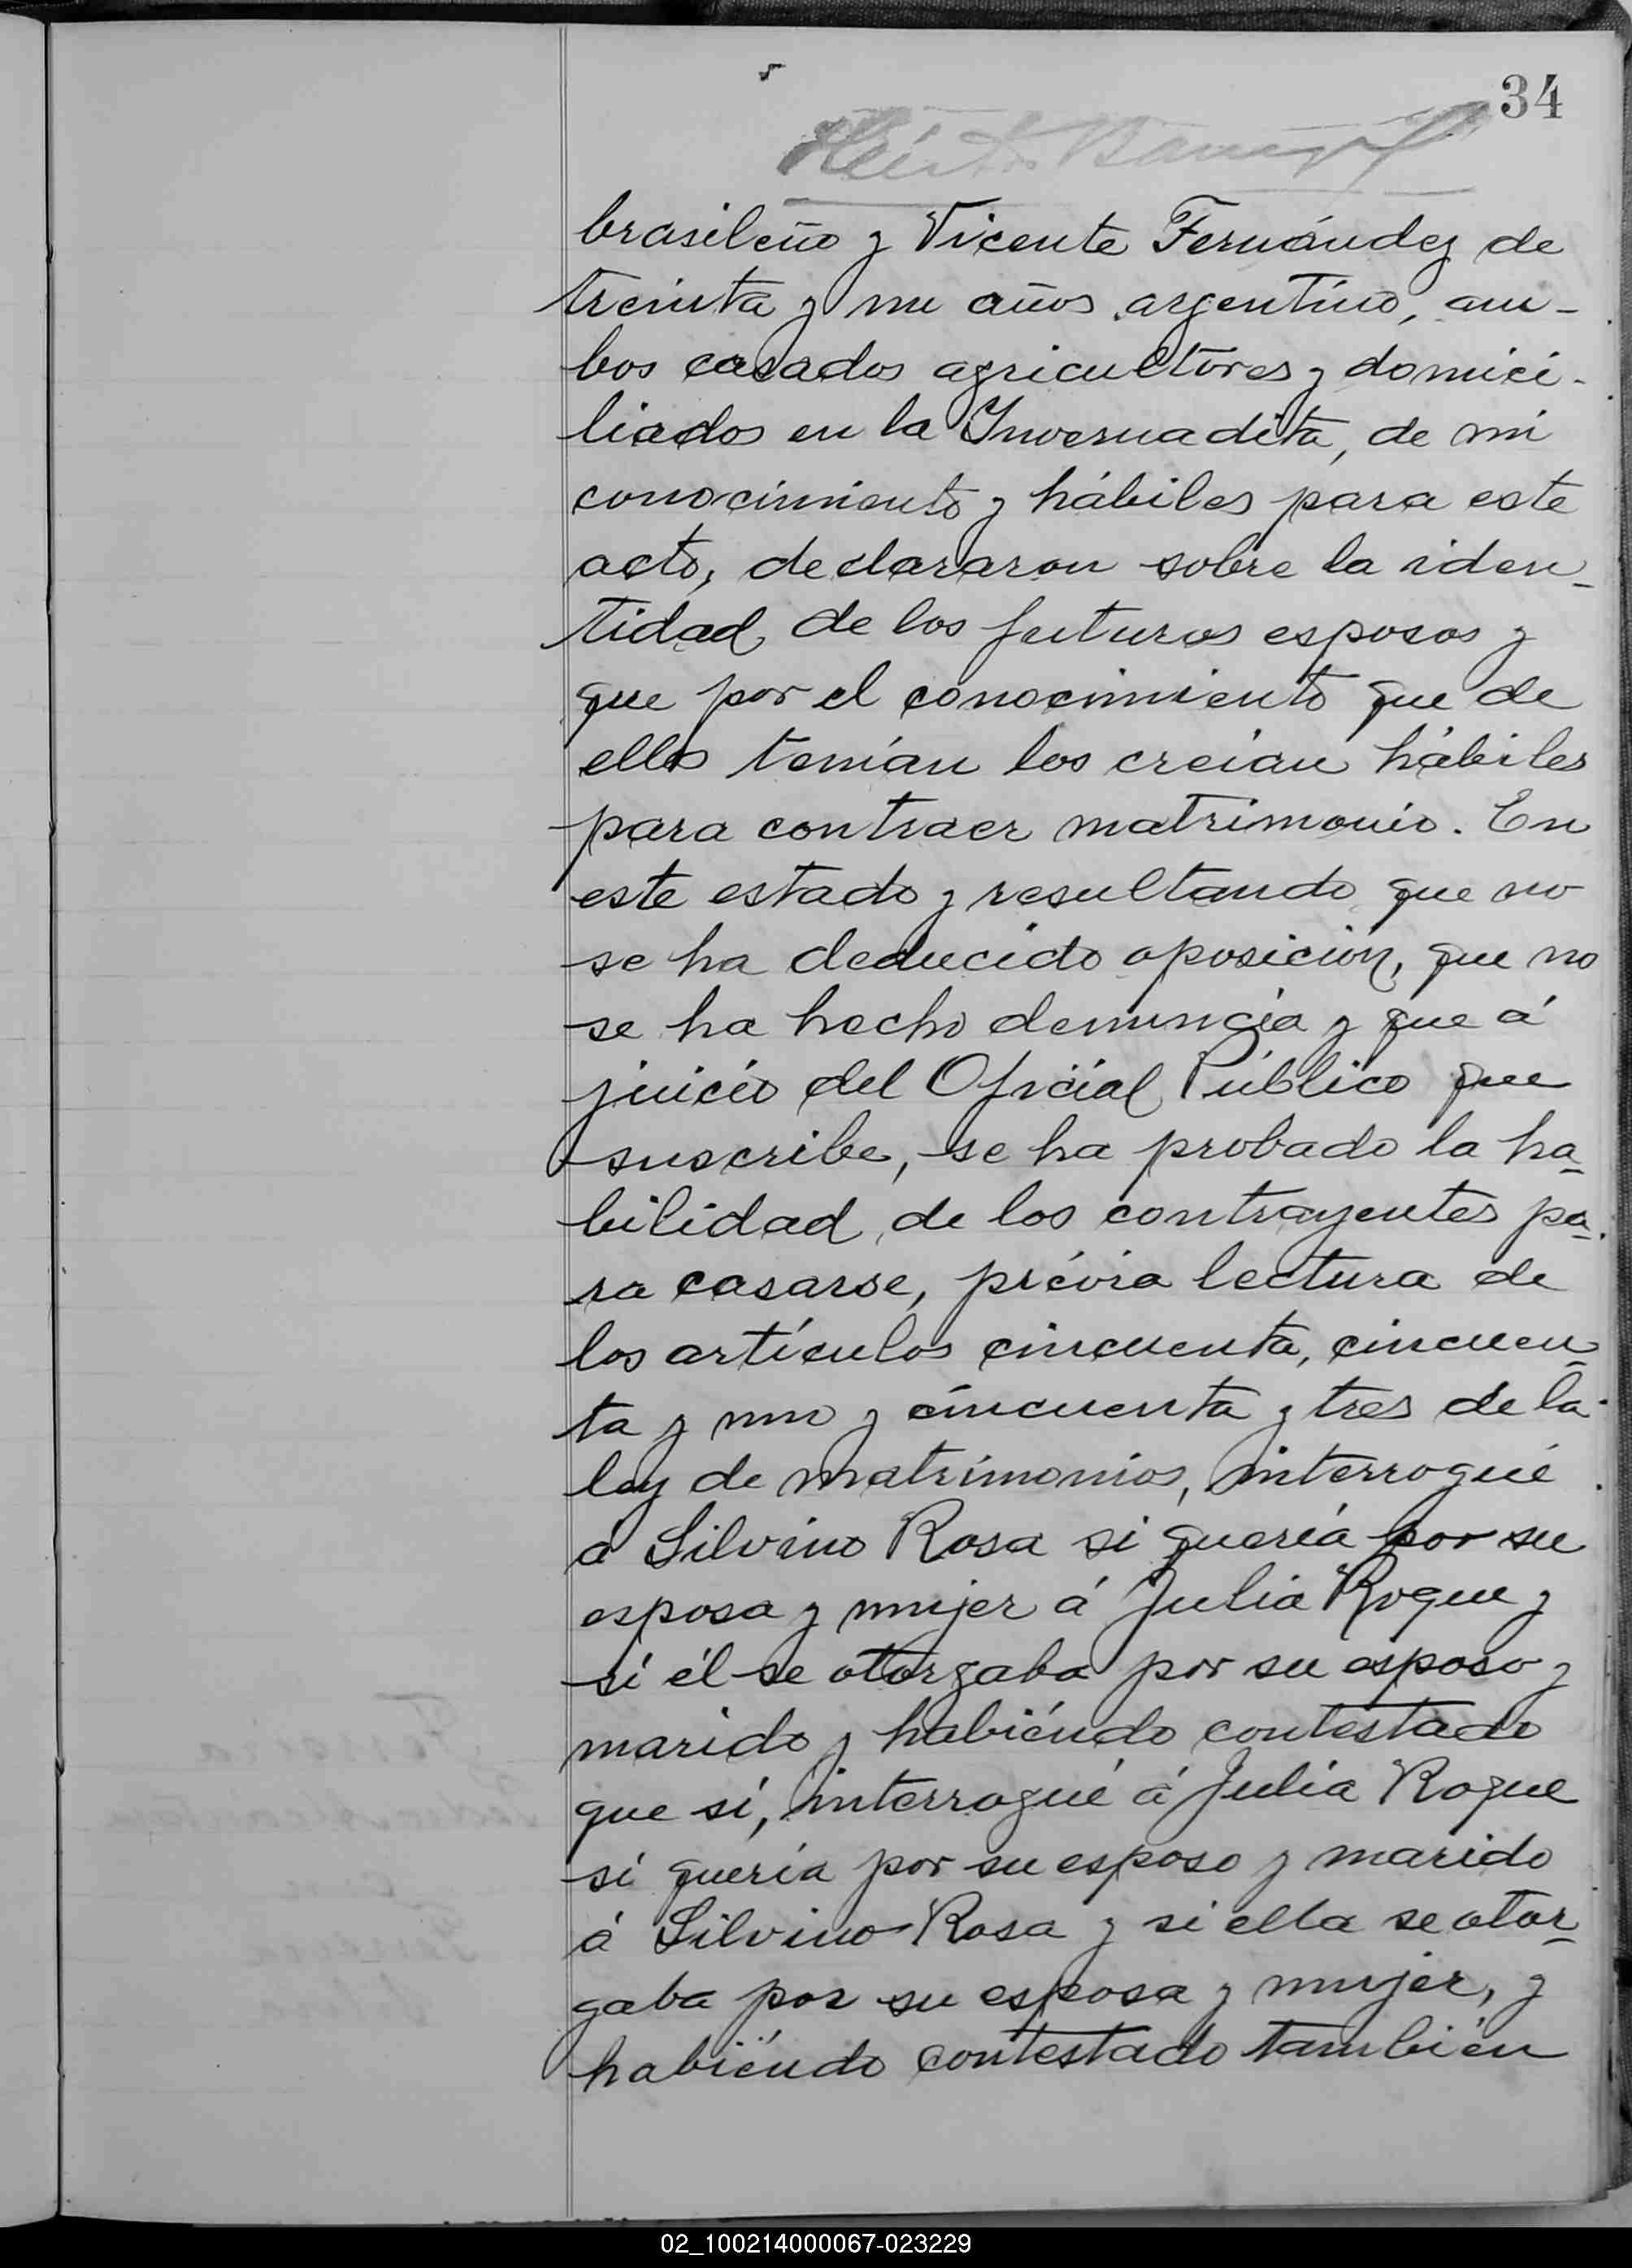 34
brasileño y Vicente Fernández de
treinta y un años argentino, am-
bos casados agricultores y domici-
liados en la Invernadita, de mi
conocimiento y hábiles para este
acto, declararon sobre la iden-
tidad de los futuros esposos y
que por el conocimiento que de
ellos tenían los creían hábiles
para contraer matrimonio. En
este estado y resultando que no
se ha deducido oposición, que no
se ha hecho denuncia y que á
juicio del Oficial Público que
suscribe, se ha probado la ha-
bilidad de los contrayentes pa-
ra casarse, prévia lectura de
los artículos cincuenta, cincuen-
ta y uno y cincuenta y tres de la
ley de matrimonios, interrogué
á Silvino Rosa si quería por su
esposa y mujer á Julia Roque y
si él se otorgaba por su esposo y
marido y habiéndo contestado
que sí, interrogué á Julia Roque
si quería por su esposo y marido
á Silvino Rosa y si ella se otor-
gaba por su esposa y mujer, y
habiéndo contestado también
02_100214000067-023229